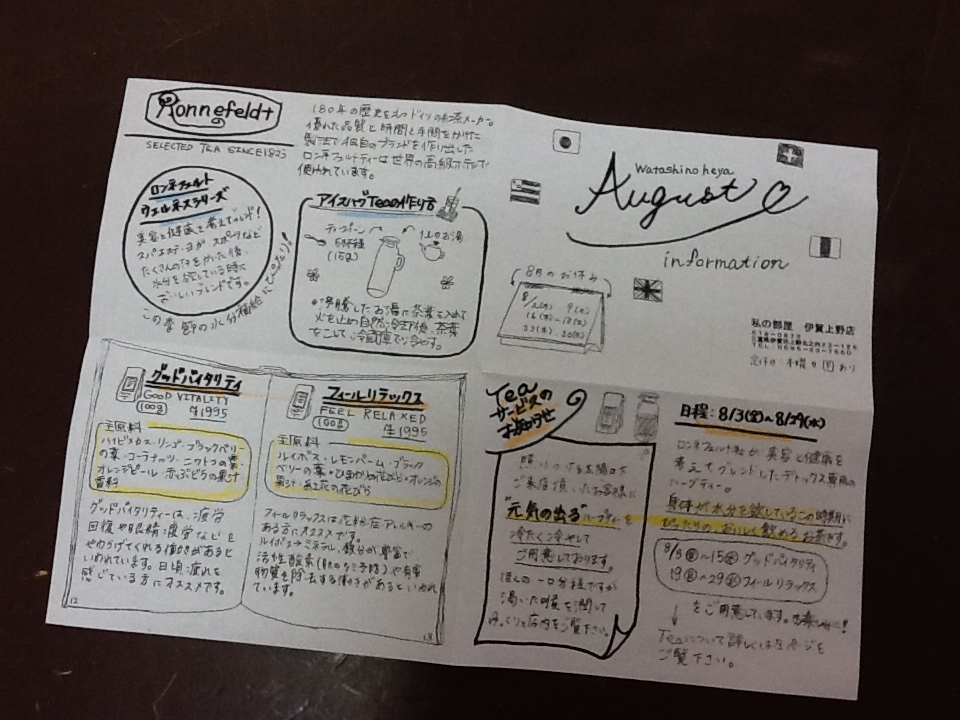 Ronnefeldt
SELECTED TEA SINCE 1823
180年の歴史をもつドイツの紅茶メーカー。
優れた品質と時間と手間をかけた
製法で独自のブランドを作り出した
ロンネフェルトティーは世界の高級ホテルで
使われています。
ロンネフェルト
ウェルネスシリーズ
美容と健康を考えてブレンド!
スパやエステ・ヨガ スポーツなど
たくさんの汗をかいた後、
水分を欲している時に
おいしいブレンドです。
この季節の水分補給にぴったり!
アイスハーブTeaの作り方
ティースプーン
5杯強
(15g)
1Lのお湯
沸騰したお湯に茶葉を入れて
火を止め自然冷却後、茶葉
をこして、冷蔵庫で冷やす。
Watashino heya
August
information
8月のお休み
8/2(木) 9(木)
16(木)
23(木) 30(木)
私の部屋 伊賀上野店
518-0873
三重県伊賀市上野丸之内
定休日:木曜日 P あり
グッドバイタリティ
GOOD VITALITY
100g ¥1995
主原料
ハイビスカス・リンゴ・ブラックベリー
の葉・ココナッツ・ニワトコの実・
オレンジピール・赤ぶどうの果汁
香料
グッドバイタリティーは、疲労
回復や眼精疲労などを
やわらげてくれる働きがあると
いわれています。日頃疲れを
感じている方にオススメです。
12
フィールリラックス
FEEL RELAXED
100g ¥1995
主原料
ルイボス・レモンバーム・ブラック
ベリーの葉・ひまわりの花びら・オレンジの
果汁・紅花の花びら
フィールリラックスは花粉症アレルギーの
ある方にオススメです。
ルイボスはミネラル、鉄分が豊富で
活性酸素(肌のシミ予防)や有害
物質を除去する働きがあるといわれ
ています。
13
Tea
サービスの
お知らせ
照りつける太陽の下
ご来店頂いたお客様に
"元気の出る"ハーブティーを
冷たく冷やして
ご用意しております。
ほんの一口分程ですが
渇いた喉を潤して
ゆっくりと店内をご覧下さい。
日程:8/3(金)~8/29(水)
ロンネフェルト社が、美容と健康を
考えてブレンドしたデトックス専用の
ハーブティー。
身体が水分を欲しているこの時期に
ぴったりのおいしく飲めるお茶です。
8/3(金)~15(水) グッドバイタリティ
~29(水) フィールリラックス
をご用意しています。お楽しみに!
Teaについて詳しくは左ページを
ご覧下さい。